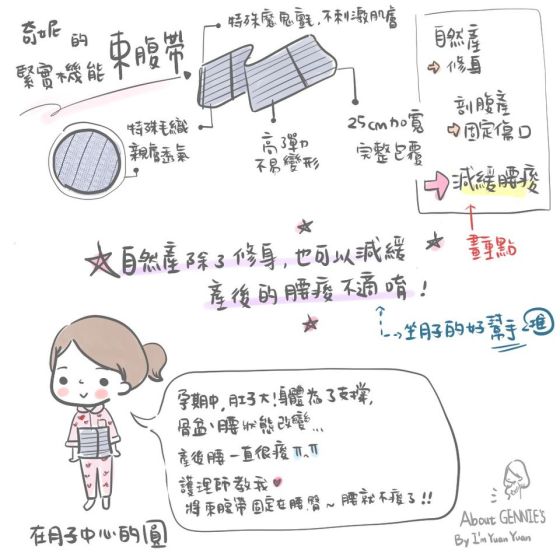 奇妮的
緊實機能 束腹帶
特殊魔鬼氈,不刺激肌膚
特殊毛織
親膚透氣
高彈力
不易變形
25cm加寬
完整包覆
自然產
修身
剖腹產
固定傷口
減緩腰痠
畫重點
自然產除了修身,也可以減緩
產後的腰痠不適唷!
坐月子的好幫手 推
孕期中,肚子大!身體為了支撐,
骨盆、腰狀態改變...
產後腰一直很痠
護理師教我
將束腹帶固定在腰臀~腰就不痠了!!
在月子中心的圓
About GENNIE'S
By I'm Yuan Yuan